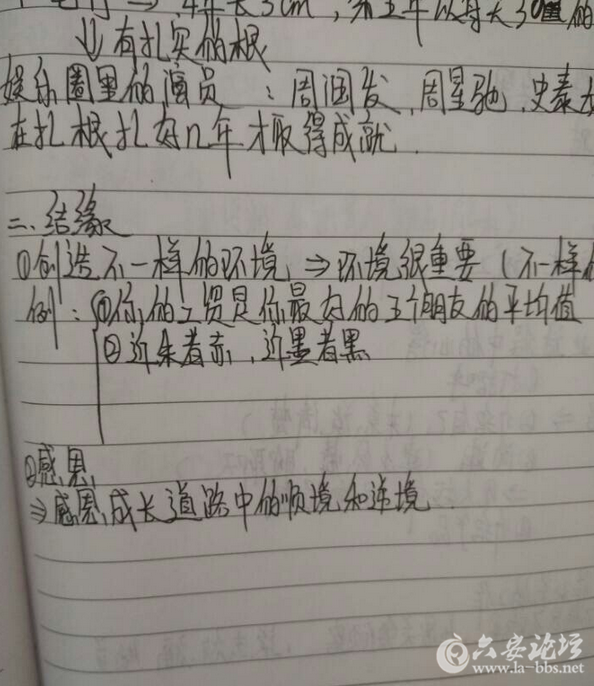 ⇒ 4年长3cm,第五年以每天30厘的
⇓有扎实的根
娱乐圈里的演员:周润发,周星驰,史泰龙
在扎根扎好几年才取得成就.
二、结缘
①创造不一样的环境 ⇒ 环境很重要(不一样
例:①你的工资是你最好的五个朋友的平均值
②近朱者赤,近墨者黑
②感恩
⇒感恩成长道路中的顺境和逆境.
六安论坛
www.la-bbs.net